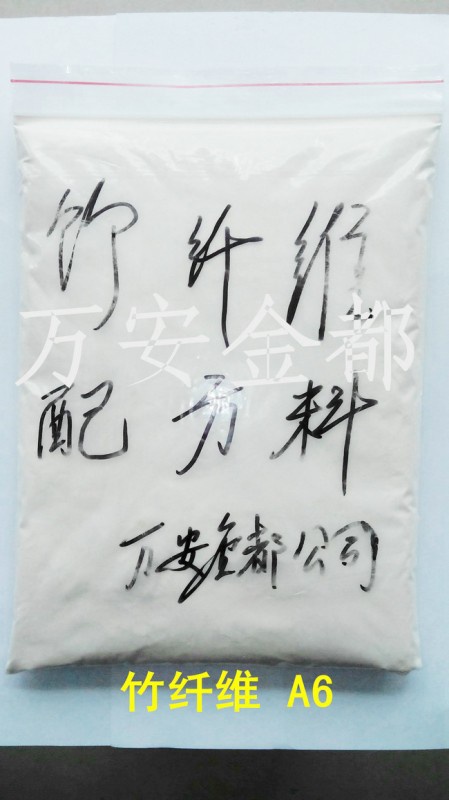 竹纤维
万安金都
配方料
万安金都公司
竹纤维 A6